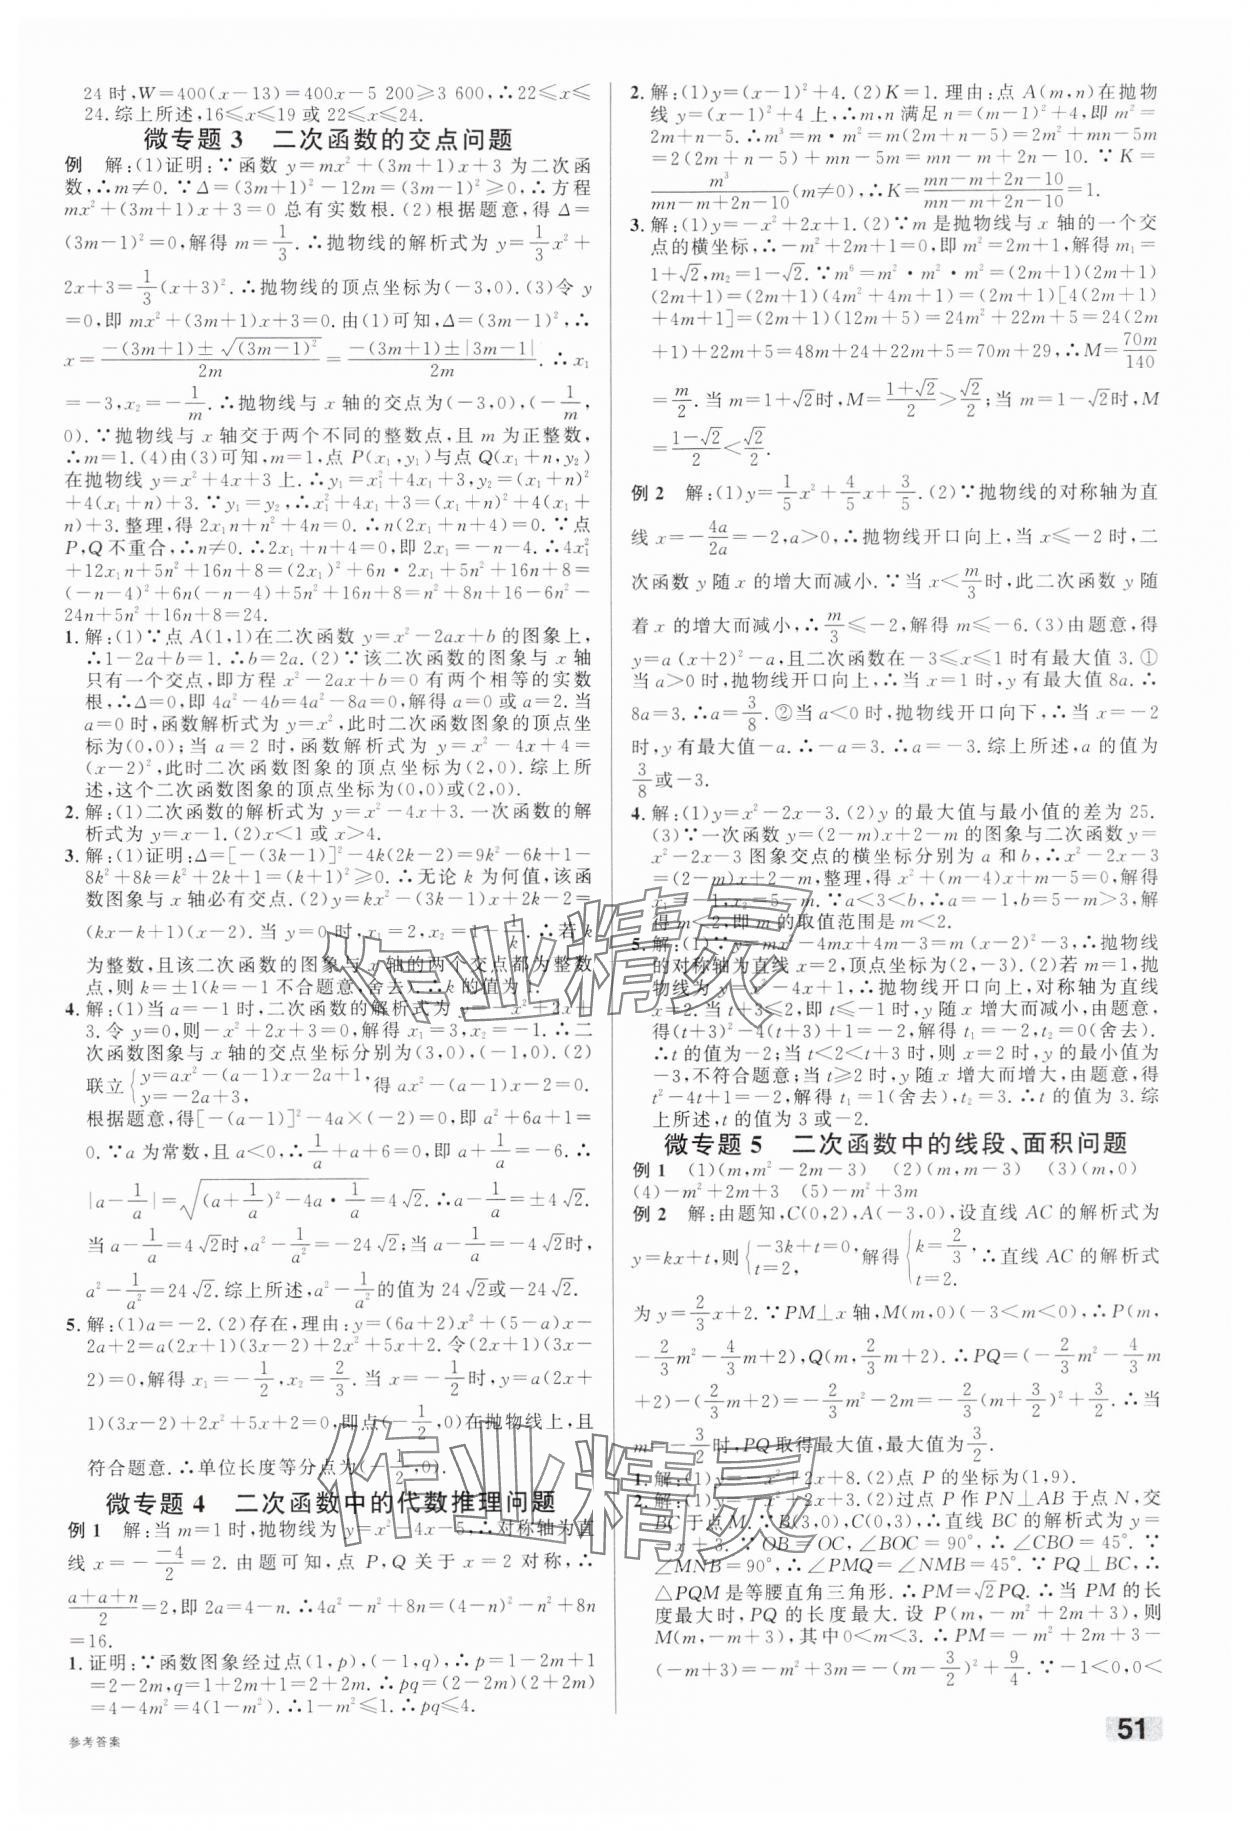 24 时,W=400(x-13)=400x-5 200≥3 600,∴22≤x≤
24. 综上所述,16≤x≤19 或 22≤x≤24.
微专题 3 二次函数的交点问题
例 解:(1)证明:∵函数 y=mx²+(3m+1)x+3 为二次函
数,∴m≠0. ∵Δ=(3m+1)²-12m=(3m-1)²≥0,∴方程
mx²+(3m+1)x+3=0 总有实数根. (2)根据题意,得 Δ=
(3m-1)²=0,解得 m=1/3. ∴抛物线的解析式为 y=1/3x²+
2x+3=1/3(x+3)². ∴抛物线的顶点坐标为(-3,0). (3)令 y
=0,即 mx²+(3m+1)x+3=0. 由(1)可知,Δ=(3m-1)²,∴
x=(-(3m+1)±√(3m-1)²)/2m=(-(3m+1)±|3m-1|)/2m. ∴x₁
=-3,x₂=-1/m. ∴抛物线与 x 轴的交点为(-3,0),(-1/m,
0). ∵抛物线与 x 轴交于两个不同的整数点,且 m 为正整数,
∴m=1. (4)由(3)可知,m=1,点 P(x₁,y₁)与点 Q(x₁+n,y₂)
在抛物线 y=x²+4x+3 上. ∴y₁=x₁²+4x₁+3,y₂=(x₁+n)²
+4(x₁+n)+3. ∵y₁=y₂,∴x₁²+4x₁+3=(x₁+n)²+4(x₁+
n)+3. 整理,得 2x₁n+n²+4n=0. ∴n(2x₁+n+4)=0. ∵点
P,Q 不重合,∴n≠0. ∴2x₁+n+4=0,即 2x₁=-n-4. ∴4x₁²
+12x₁n+5n²+16n+8=(2x₁)²+6n·2x₁+5n²+16n+8=
(-n-4)²+6n(-n-4)+5n²+16n+8=n²+8n+16-6n²-
24n+5n²+16n+8=24.
1. 解:(1)∵点 A(1,1)在二次函数 y=x²-2ax+b 的图象上,
∴1-2a+b=1. ∴b=2a. (2)∵该二次函数的图象与 x 轴
只有一个交点,即方程 x²-2ax+b=0 有两个相等的实数
根,∴Δ=0,即 4a²-4b=4a²-8a=0,解得 a=0或 a=2. 当
a=0 时,函数解析式为 y=x²,此时二次函数图象的顶点坐
标为(0,0);当 a=2 时,函数解析式为 y=x²-4x+4=
(x-2)²,此时二次函数图象的顶点坐标为(2,0). 综上所
述,这个二次函数图象的顶点坐标为(0,0)或(2,0).
2. 解:(1)二次函数的解析式为 y=x²-4x+3. 一次函数的解
析式为 y=x-1. (2)x<1 或 x>4.
3. 解:(1)证明:Δ=[-(3k-1)]²-4k(2k-2)=9k²-6k+1-
8k²+8k=k²+2k+1=(k+1)²≥0. ∴无论 k 为何值,该函
数图象与 x 轴必有交点. (2)y=kx²-(3k-1)x+2k-2=
(kx-k+1)(x-2). 当 y=0时,x₁=2,x₂=1-1/k. ∴若 k
为整数,且该二次函数的图象与 x 轴的两个交点都为整数
点,则 k=±1(k=-1 不合题意,舍去). ∴k 的值为 1.
4. 解:(1)当 a=-1 时,二次函数的解析式为 y=-x²+2x+
3. 令 y=0,则-x²+2x+3=0,解得 x₁=3,x₂=-1. ∴二
次函数图象与 x 轴的交点坐标分别为(3,0),(-1,0). (2)
联立{y=ax²-(a-1)x-2a+1, y=-2a+3, 得 ax²-(a-1)x-2=0.
根据题意,得[-(a-1)]²-4a×(-2)=0,即 a²+6a+1=
0. ∵a 为常数,且 a≠0,∴1/a+a+6=0,即 a+1/a=-6. ∴
|a-1/a|=√((a+1/a)²-4a·1/a)=4√2. ∴a-1/a=±4√2.
当 a-1/a=4√2时,a²-1/a²=-24√2;当 a-1/a=-4√2时,
a²-1/a²=24√2. 综上所述,a²-1/a²的值为 24√2或-24√2.
5. 解:(1)a=-2. (2)存在,理由:y=(6a+2)x²+(5-a)x-
2a+2=a(2x+1)(3x-2)+2x²+5x+2. 令(2x+1)(3x-
2)=0,解得 x₁=-1/2,x₂=2/3. 当 x=-1/2时,y=a(2x+
1)(3x-2)+2x²+5x+2=0,即点(-1/2,0)在抛物线上,且
符合题意. ∴单位长度等分点为(-1/2,0).
微专题 4 二次函数中的代数推理问题
例 1 解:当 m=1 时,抛物线为 y=x²-4x-5,∴对称轴为直
线 x=-(-4)/2=2. 由题可知,点 P,Q 关于 x=2 对称,∴
(a+a+n)/2=2,即 2a=4-n. ∴4a²-n²+8n=(4-n)²-n²+8n
=16.
1. 证明:∵函数图象经过点(1,p),(-1,q),∴p=1-2m+1
=2-2m,q=1+2m+1=2+2m. ∴pq=(2-2m)(2+2m)
=4-4m²=4(1-m²). ∵1-m²≤1,∴pq≤4.
2. 解:(1)y=(x-1)²+4. (2)K=1. 理由:点 A(m,n)在抛物
线 y=(x-1)²+4 上,∴m,n 满足 n=(m-1)²+4,即 m²=
2m+n-5. ∴m³=m·m²=m(2m+n-5)=2m²+mn-5m
=2(2m+n-5)+mn-5m=mn-m+2n-10. ∵K=
m³/(mn-m+2n-10)(m≠0),∴K=(mn-m+2n-10)/(mn-m+2n-10)=1.
3. 解:(1)y=-x²+2x+1. (2)∵m 是抛物线与 x 轴的一个交
点的横坐标,∴-m²+2m+1=0,即 m²=2m+1,解得 m₁=
1+√2,m₂=1-√2. ∵m⁶=m²·m²·m²=(2m+1)(2m+1)
(2m+1)=(2m+1)(4m²+4m+1)=(2m+1)[4(2m+1)
+4m+1]=(2m+1)(12m+5)=24m²+22m+5=24(2m
+1)+22m+5=48m+24+22m+5=70m+29,∴M=70m/140
=m/2. 当 m=1+√2时,M=(1+√2)/2>√2/2;当 m=1-√2时,M
=(1-√2)/2<√2/2.
例 2 解:(1)y=1/5x²+4/5x+3/5. (2)∵抛物线的对称轴为直
线 x=-4a/2a=-2,a>0,∴抛物线开口向上,当 x≤-2 时,二
次函数 y 随 x 的增大而减小. ∵当 x<m/3时,此二次函数 y 随
着 x 的增大而减小,∴m/3≤-2,解得 m≤-6. (3)由题意,得
y=a(x+2)²-a,且二次函数在-3≤x≤1 时有最大值 3. ①
当 a>0 时,抛物线开口向上,∴当 x=1 时,y 有最大值 8a. ∴
8a=3. ∴a=3/8. ②当 a<0 时,抛物线开口向下,∴当 x=-2
时,y 有最大值-a. ∴-a=3. ∴a=-3. 综上所述,a 的值为
3/8或-3.
4. 解:(1)y=x²-2x-3. (2)y 的最大值与最小值的差为 25.
(3)∵一次函数 y=(2-m)x+2-m 的图象与二次函数 y=
x²-2x-3 图象交点的横坐标分别为 a 和 b,∴x²-2x-3
=(2-m)x+2-m,整理,得 x²+(m-4)x+m-5=0,解得
x₁=-1,x₂=5-m. ∵a<3<b,∴a=-1,b=5-m>3,解
得 m<2,即 m 的取值范围是 m<2.
5. 解:(1)∵y=mx²-4mx+4m-3=m(x-2)²-3,∴抛物线
的对称轴为直线 x=2,顶点坐标为(2,-3). (2)若 m=1,抛
物线为 y=x²-4x+1,∴抛物线开口向上,对称轴为直线
x=2. 当 t+3≤2,即 t≤-1 时,y 随 x 增大而减小,由题意,
得(t+3)²-4(t+3)+1=-2t,解得 t₁=-2,t₂=0(舍去).
∴t 的值为-2;当 t<2<t+3 时,则 x=2 时,y 的最小值为
-3,不符合题意;当 t≥2 时,y 随 x 增大而增大,由题意,得
t²-4t+1=-2,解得 t₁=1(舍去),t₂=3. ∴t 的值为 3. 综
上所述,t 的值为 3 或-2.
微专题 5 二次函数中的线段、面积问题
例 1 (1)(m,m²-2m-3) (2)(m,m-3) (3)(m,0)
(4)-m²+2m+3 (5)-m²+3m
例 2 解:由题知,C(0,2),A(-3,0),设直线 AC 的解析式为
y=kx+t,则{-3k+t=0, t=2, 解得{k=2/3, t=2. ∴直线 AC 的解析式
为 y=2/3x+2. ∵PM⊥x 轴,M(m,0)(-3<m<0),∴P(m,
-2/3m²-4/3m+2),Q(m,2/3m+2). ∴PQ=(-2/3m²-4/3m
+2)-(2/3m+2)=-2/3m²-2m=-2/3(m+3/2)²+3/2. ∴当
m=-3/2时,PQ 取得最大值,最大值为3/2.
1. 解:(1)y=-x²+2x+8. (2)点 P 的坐标为(1,9).
2. 解:(1)y=-x²+2x+3. (2)过点 P 作 PN⊥AB 于点 N,交
BC 于点 M. ∵B(3,0),C(0,3),∴直线 BC 的解析式为 y=
-x+3. ∵OB=OC,∠BOC=90°,∴∠CBO=45°. ∵
∠MNB=90°,∴∠PMQ=∠NMB=45°. ∵PQ⊥BC,∴
△PQM 是等腰直角三角形. ∴PM=√2PQ. ∴当 PM 的长
度最大时,PQ 的长度最大. 设 P(m,-m²+2m+3),则
M(m,-m+3),其中0<m<3. ∴PM=-m²+2m+3-
(-m+3)=-m²+3m=-(m-3/2)²+9/4. ∵-1<0,0<
参考答案
51
作业精灵
作业精灵